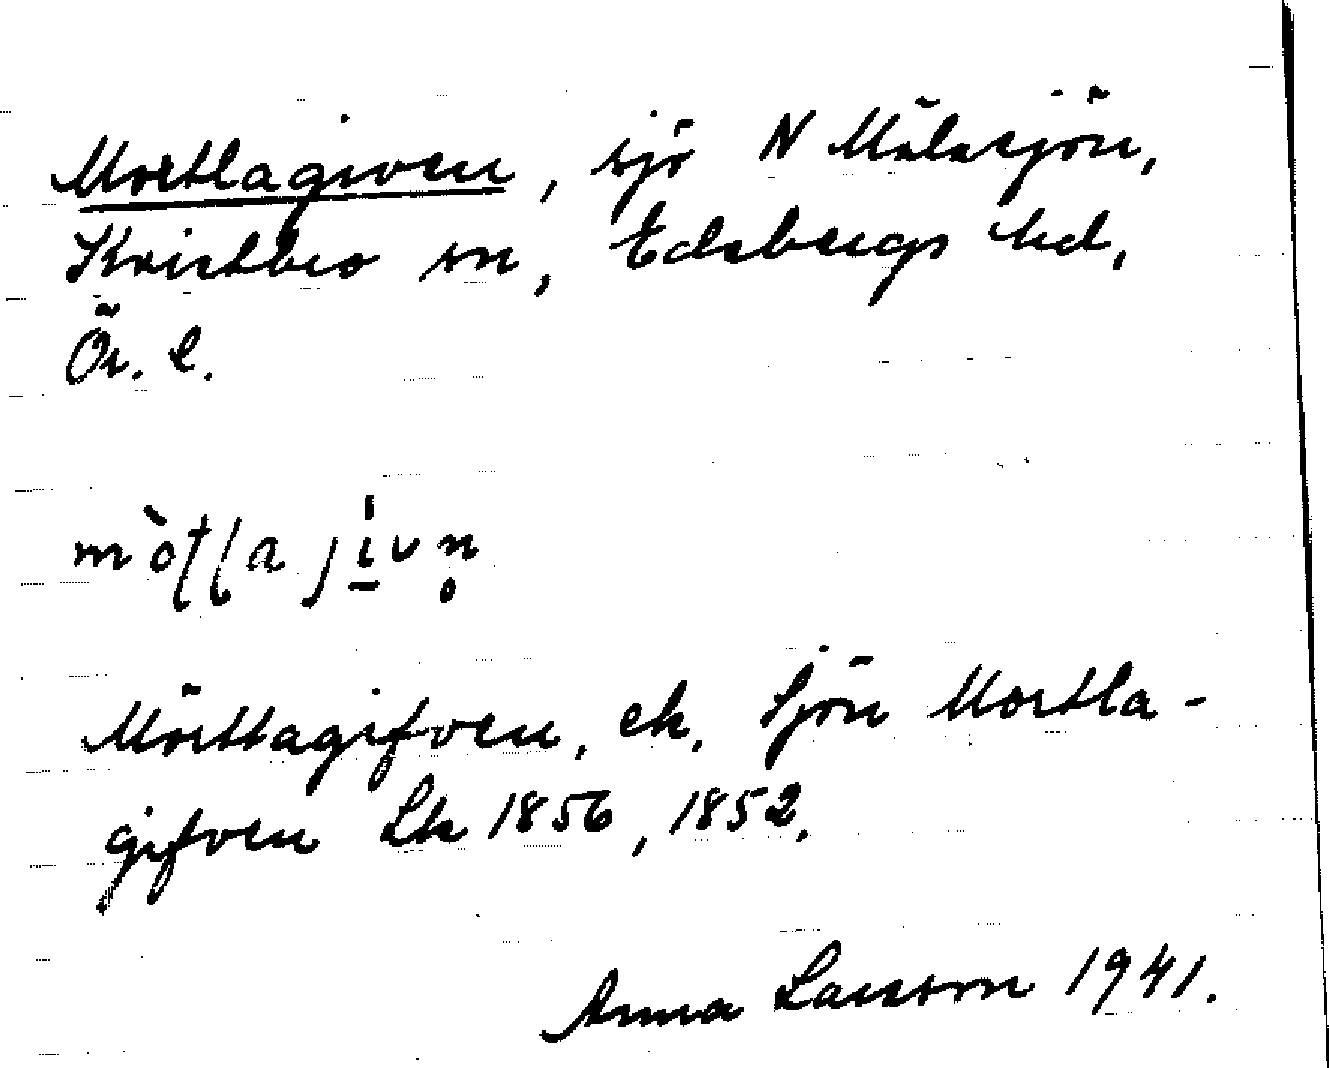 Mortlagiven, sjö N Målasjön,
Kvistbro sn, Edsbergs hd,
Ör. l.
Mörttagifven, ek. Sjön Mortla-
gifven Lk 1856, 1852.
Anna Larsson 1941.